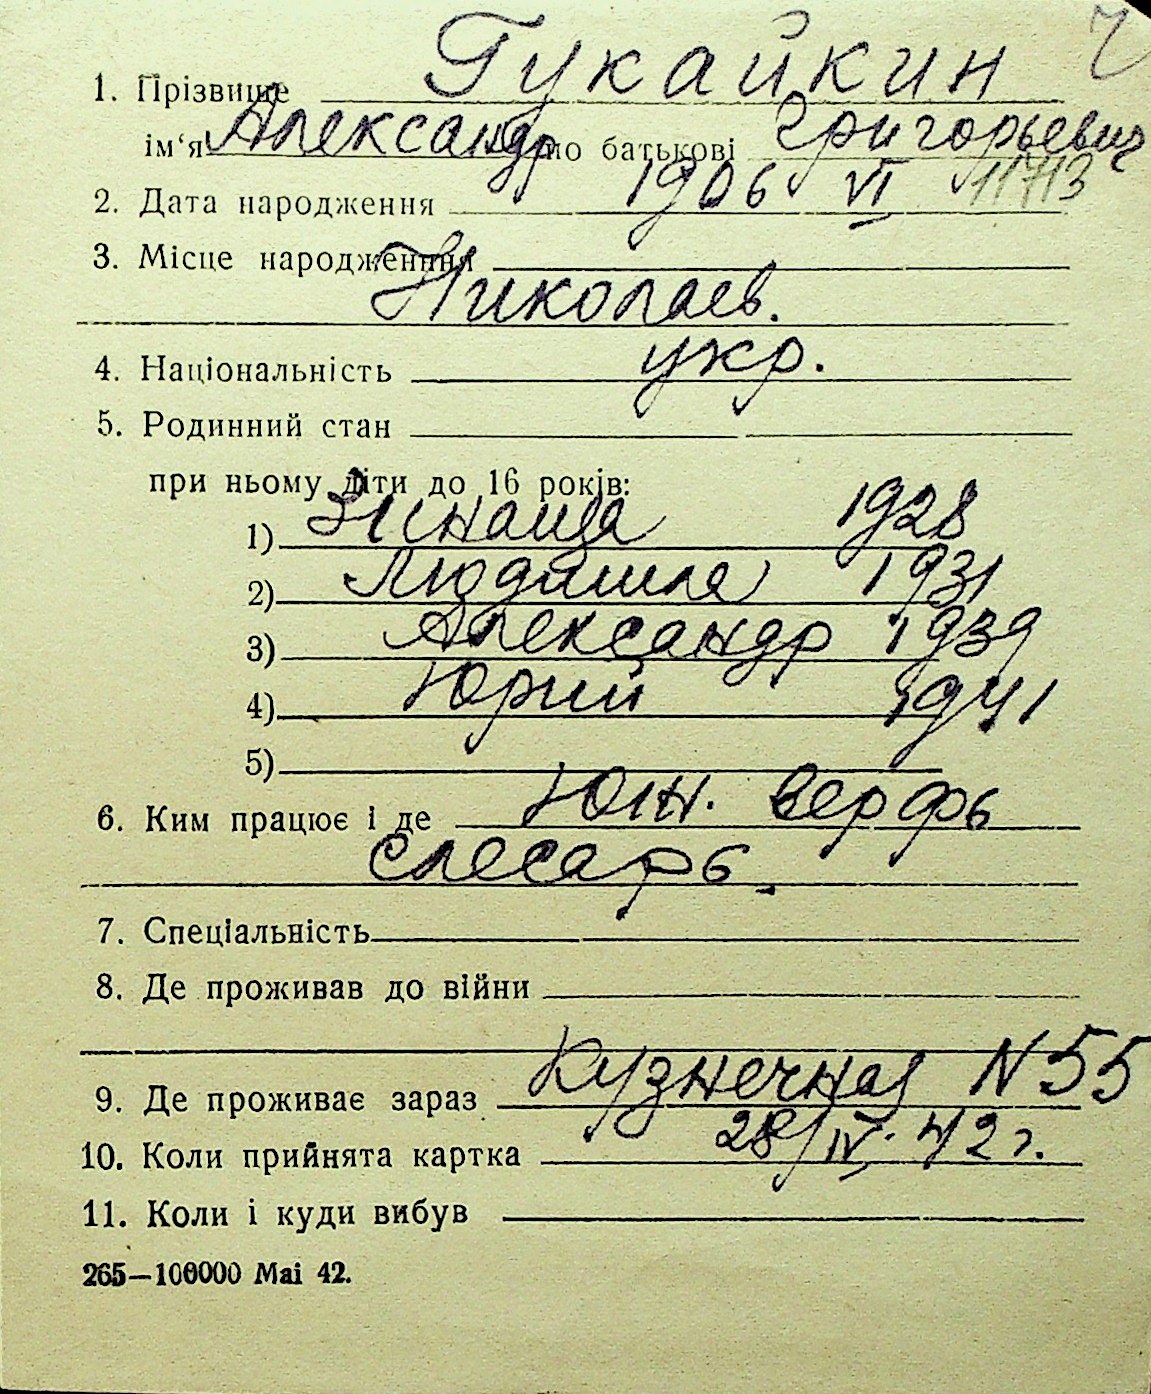 Ч
1. Прізвище Гукайкин
ім‘я Александр по батькові Григорьевич
2. Дата народження 1906 VI 11713
3. Місце народження
Николаев.
4. Національність укр.
5. Родинний стан
при ньому діти до 16 років:
1) Зинаида 1928
2) Людмила 1931
3) Александр 1939
4) Юрий 1941
5)
6. Ким працює і де Южн. верфь
слесарь.
7. Спеціальність
8. Де проживав до війни
9. Де проживає зараз Кузнечная N 55
10. Коли прийнята картка 28/IV. 42 г.
11. Коли і куди вибув
265—100000 Mai 42.